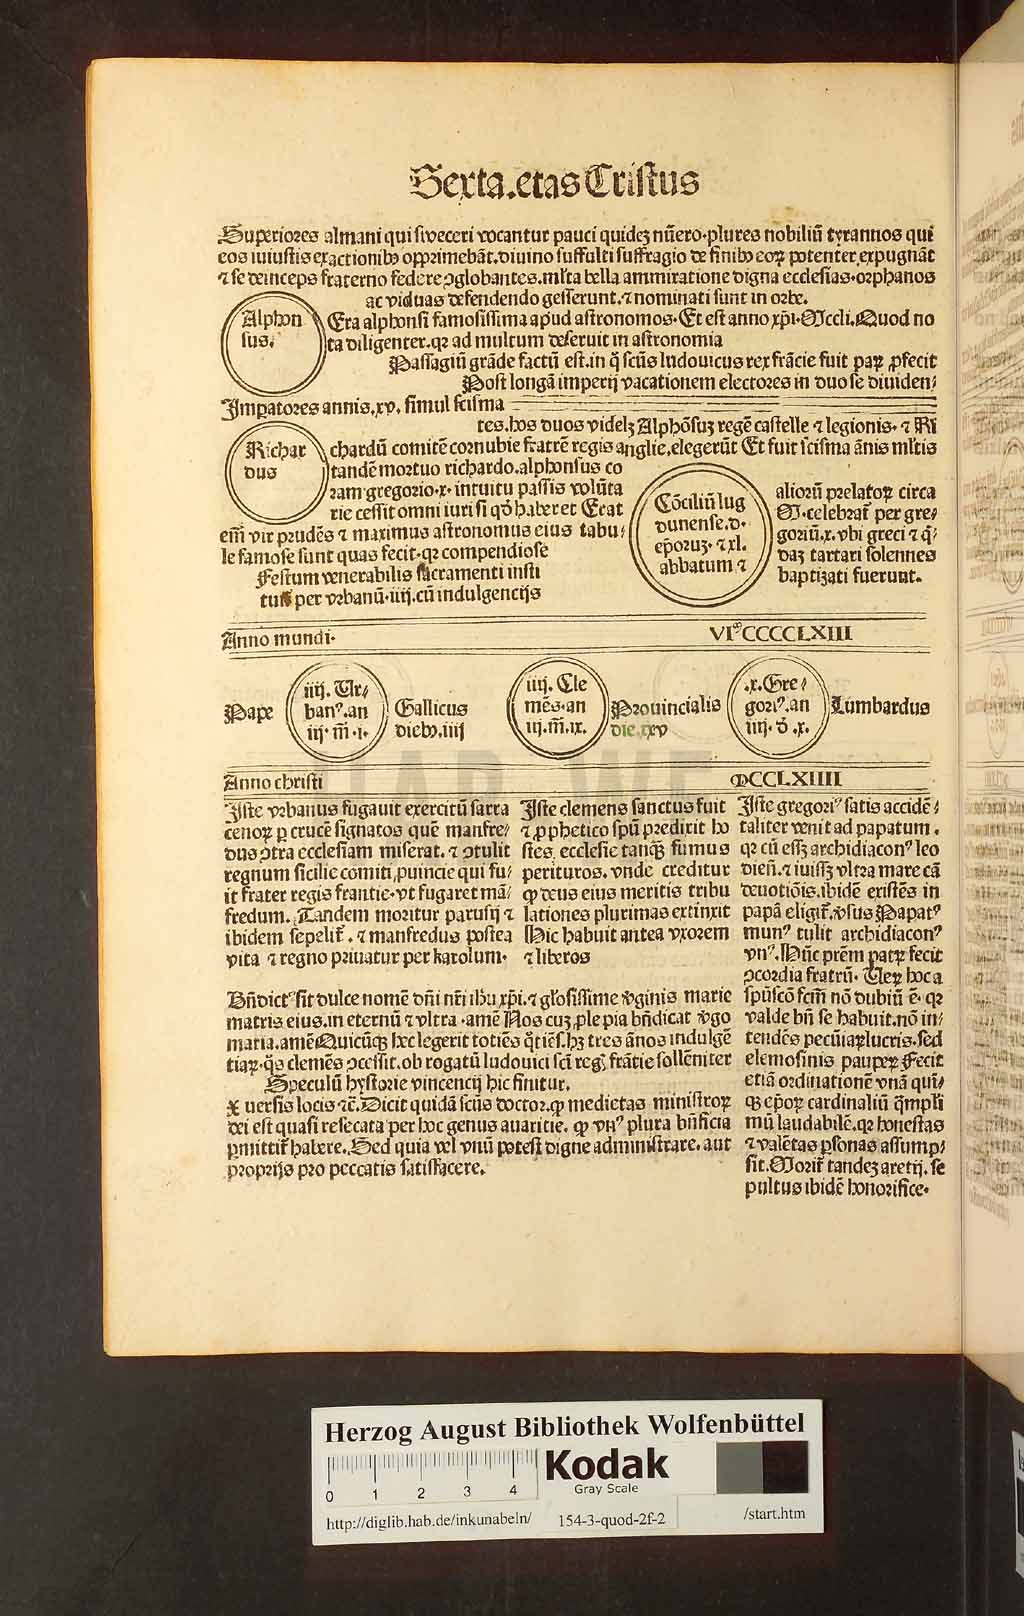 Sexta.etas Cristus
Superiores almani qui siweceri vocantur pauci quidez nũero·plures nobiliũ tyrannos qui
eos iniustis exactionibꝰ opprimebãt.diuino suffulti suffragio de finibꝰ eoꝝ potenter expugnãt
⁊ se deinceps fraterno federe ꝯglobantes.ml'ta bella ammiratione digna ecclesias·orphanos
ac viduas defendendo gesserunt.⁊ nominati sunt in orbe.
Alphon
sus.
Era alphonsi famosissima apud astronomos·Et est anno xp̃i·Mccli.Quod no
ta diligenter.qꝛ ad multum deseruit in astronomia
Passagiũ grãde factũ est.in q̃ sc̃us ludouicus rex frãcie fuit paꝝ ꝓfecit
Post longã imperij vacationem electores in duo se diuiden⸗
Impatores annis.xv. simul scisma
tes.hos duos videlꝫ Alphõsuꝫ regẽ castelle ⁊ legionis·⁊ Ri
Richar
dus
chardũ comitẽ cornubie fratrẽ regis anglie.elegerũt Et fuit scisma ãnis ml'tis
tandẽ mortuo richardo.alphonsus co
ram gregorio·x· intuitu passis volũta
rie cessit omni iuri si qd̃ haberet Erat
em̃ vir prudẽs ⁊ maximus astronomus eius tabu⸗
le famose sunt quas fecit·qꝛ compendiose
Festum venerabilis sacramenti insti
tuit per vrbanũ·iiij.cũ indulgencijs
Cõciliũ lug
dunense.d.
ep̃oruꝫ·⁊ xl.
abbatum ⁊
aliorũ prelatoꝝ circa
M·celebrat̃ per gre⸗
goriũ.x.vbi greci ⁊ q̃⸗
daꝫ tartari solennes
baptizati fuerunt.
Anno mundi·
VIᵐCCCCCLXIII
Pape
iiij. Vr⸗
banꝰ.an
iij· m̃·i·
Gallicus
diebꝰ.iiij
iiij. Cle
mẽs·an
iij.m̃.ix.
Prouincialis
die.xxv
.x.Gre⸗
goriꝰ.an
iiij· d̃ .x.
Lumbardus
Anno christi
MCCLXIIII
Iste vrbanus fugauit exercitũ sarra
cenoꝝ ꝑ crucẽ signatos quẽ manfre⸗
dus ꝯtra ecclesiam miserat. ⁊ ꝯtulit
regnum sicilie comiti ꝓuincie qui fu⸗
it frater regis frantie·vt fugaret mã⸗
fredum. Tandem moritur parusij ⁊
ibidem sepelit̃. ⁊ manfredus postea
vita ⁊ regno priuatur per karolum·
Iste clemens sanctus fuit
⁊ ꝓphetico spũ predixit ho
stes ecclesie tanqꝫ fumus
perituros. vnde creditur
ꝙ deus eius meritis tribu
lationes plurimas extinxit
Hic habuit antea vxorem
⁊ liberos
Iste gregoriꝰ satis accidẽ⸗
taliter venit ad papatum.
qꝛ cũ essꝫ archidiaconꝰ leo
dieñ.⁊ iuissꝫ vltra mare cã
deuotiõis.ibidẽ existẽs in
papã eligit̃.v̾sus Papatꝰ
munꝰ tulit archidiaconꝰ
vnꝰ.Hũc prẽm patꝝ fecit
ꝯcordia fratrũ· Ueꝝ hoc a
spũscõ fcm̃ nõ dubiũ ẽ·qꝛ
valde bñ se habuit.nõ in⸗
tendẽs pecũiaꝝ lucris.sed
elemosinis pauperꝝ Fecit
etiã ordinationẽ vnã qui⸗
qꝫ ep̃oꝝ cardinaliũ q̃mpli
mũ laudabilẽ.qꝛ honestas
⁊ valẽtas ꝑsonas assump⸗
sit.Morit̃ tandeꝫ aretij. se
pultus ibidẽ honorifice·
Bñdictꝰ sit dulce nomẽ dñi nr̃i ihũ xp̃i.⁊ gl'osissime v̾ginis marie
matris eius.in eternũ ⁊ vltra·amẽ Nos cuꝫ ꝓle pia bñdicat v̾go
maria.amẽ Quicũqꝫ hec legerit totiẽs q̃tiẽs.hꝫ tres ãnos indulgẽ
tiaꝝ·q̃s clemẽs ꝯcessit.ob rogatũ ludouici sc̃i reg̃ frãtie sollẽniter
Speculũ hystorie vincencij hic finitur.
X uersis locis ⁊c̃.Dicit quidã sc̃us doctor.ꝙ medietas ministroꝝ
dei est quasi resecata per hoc genus auaritie. ꝙ vnꝰ plura bñficia
ꝑmittit̃ habere..Sed quia vel vnũ potest digne administrare.aut
proprijs pro peccatis satisfacere.
Herzog August Bibliothek Wolfenbüttel
0 1 2 3 4
Kodak
Gray Scale
http://diglib.hab.de/inkunabeln/ 154-3-quod-2f-2 /start.htm
HAB WF